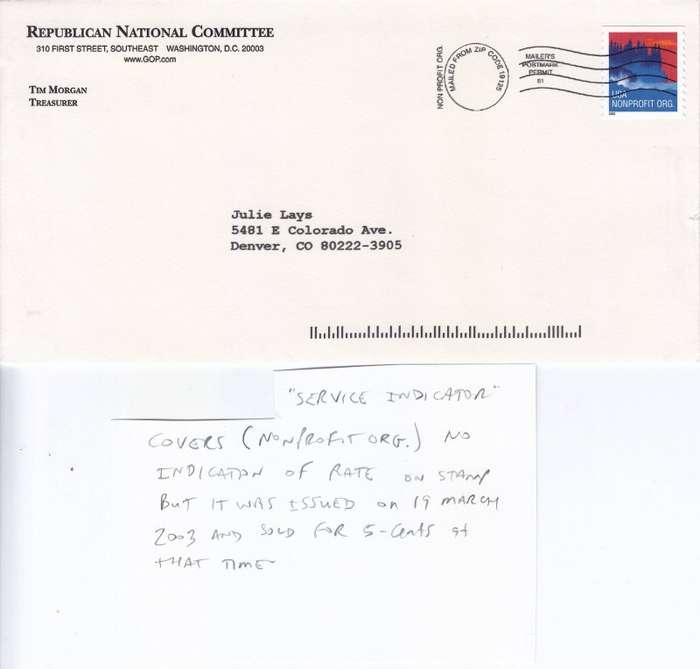 REPUBLICAN NATIONAL COMMITTEE
310 FIRST STREET, SOUTHEAST WASHINGTON, D.C. 20003
www.GOP.com
TIM MORGAN
TREASURER
NON PROFIT ORG.
MAILED FROM ZIP CODE 19185
MAILER'S
POSTMARK
PERMIT
61
USA
NONPROFIT ORG.
Julie Lays
5481 E Colorado Ave.
Denver, CO 80222-3905
"SERVICE INDICATOR"
COVERS (NONPROFIT ORG.) NO
INDICATION OF RATE ON STAMP
BUT IT WAS ISSUED ON 19 MARCH
2003 AND SOLD FOR 5-Cents at
THAT TIME